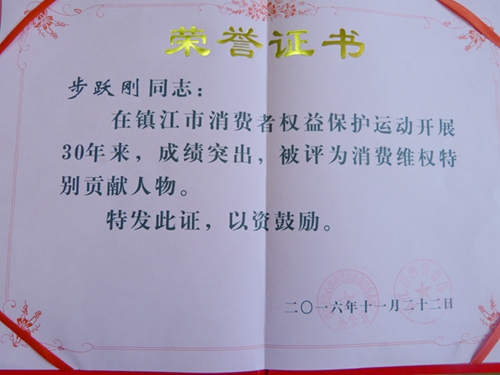 荣誉证书
步跃刚同志：
在镇江市消费者权益保护运动开展
30年来，成绩突出，被评为消费维权特
别贡献人物。
特发此证，以资鼓励。
二〇一六年十一月二十二日